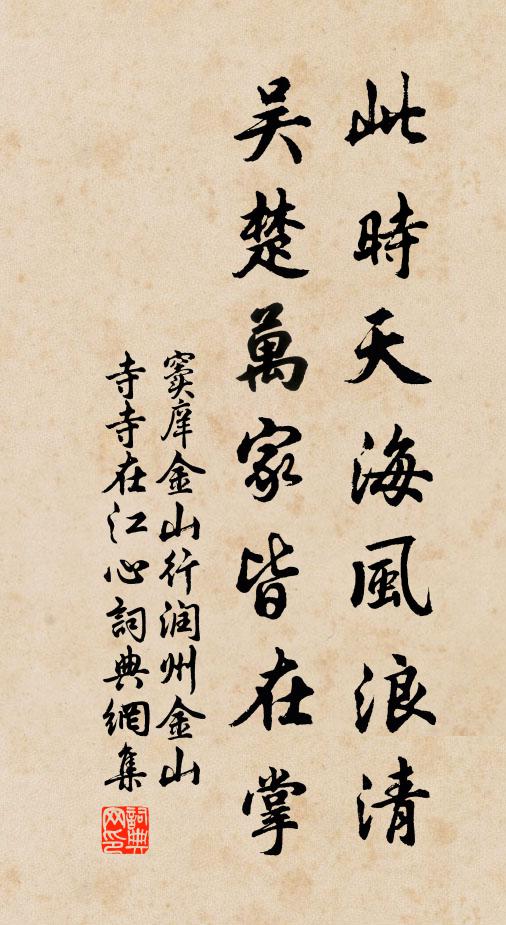 此時天海風浪清
吳楚萬家皆在掌
竇庠金山行润州金山
寺寺在江心詞典網集
詞典网印